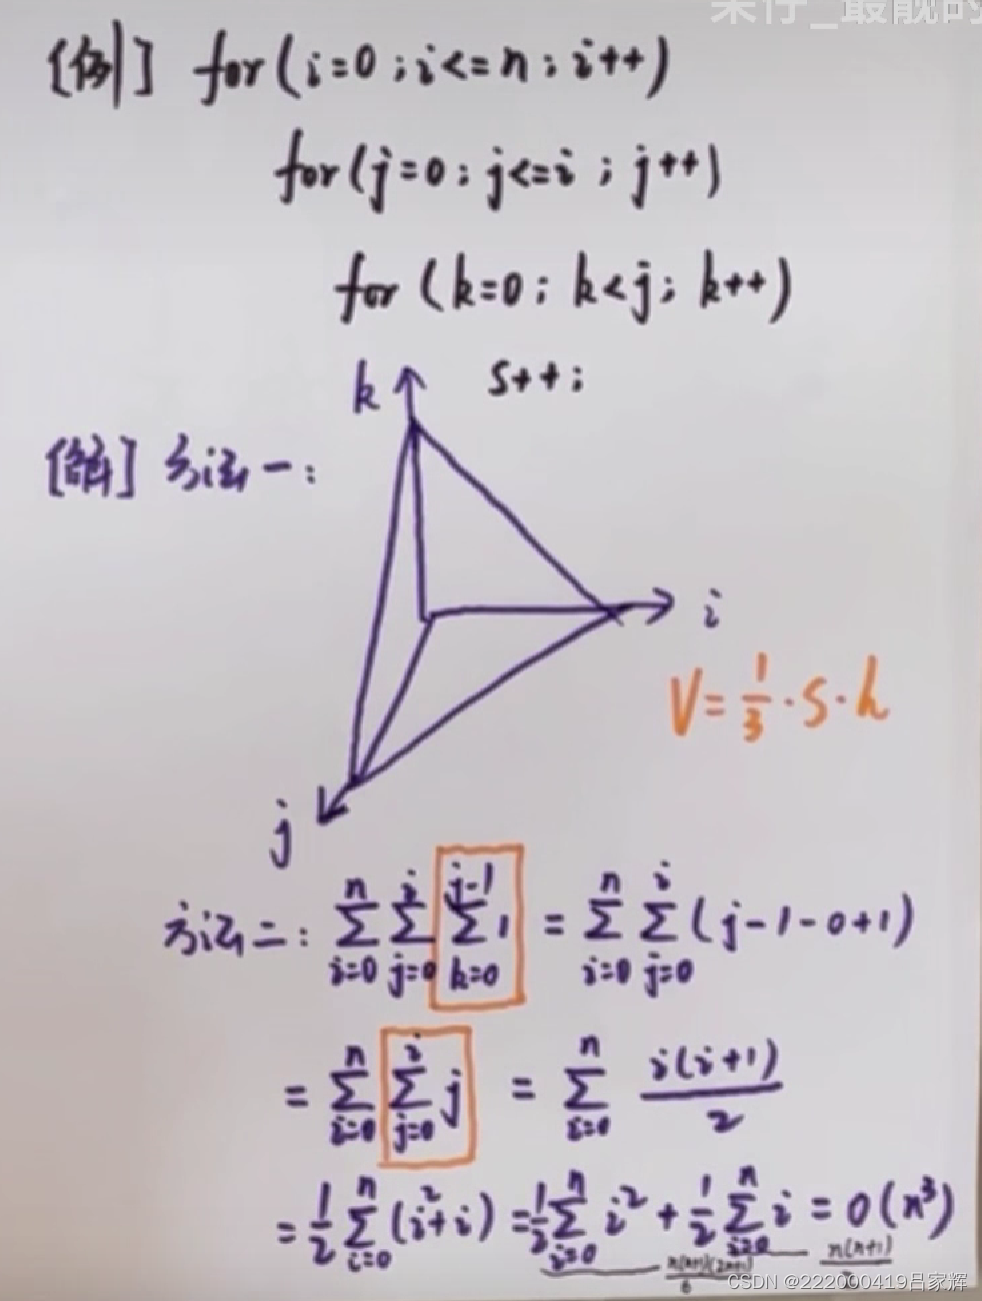 呆仔_最靓的
[例] for(i=0;i<=n;i++)
for(j=0;j<=i;j++)
for(k=0;k<j;k++)
s++;
k
[解] 方法一:
i
V=1/3·S·h
j
方法二: ∑_{i=0}^{n} ∑_{j=0}^{i} ∑_{k=0}^{j-1} 1 = ∑_{i=0}^{n} ∑_{j=0}^{i} (j-1-0+1)
= ∑_{i=0}^{n} ∑_{j=0}^{i} j = ∑_{i=0}^{n} i(i+1)/2
= 1/2 ∑_{i=0}^{n} (i²+i) = 1/2 ∑_{i=0}^{n} i² + 1/2 ∑_{i=0}^{n} i = O(n³)
n(n+1)(2n+1)/6 n(n+1)/2
CSDN @222000419吕家辉